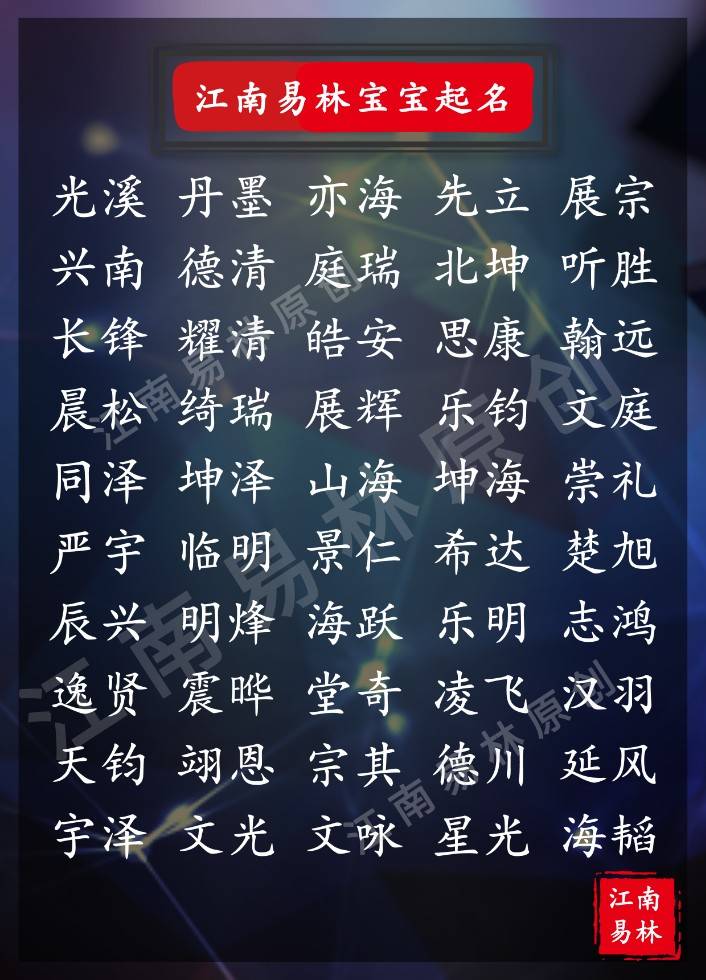 江南易林宝宝起名
光溪 丹墨 亦海 先立 展宗
兴南 德清 庭瑞 北坤 听胜
长锋 耀清 皓安 思康 翰远
晨松 绮瑞 展辉 乐钧 文庭
同泽 坤泽 山海 坤海 崇礼
严宇 临明 景仁 希达 楚旭
辰兴 明烽 海跃 乐明 志鸿
逸贤 震晔 堂奇 凌飞 汉羽
天钧 翊恩 宗其 德川 延风
宇泽 文光 文咏 星光 海韬
江南易林原创
江南易林原创
江南易林原创
江南
易林